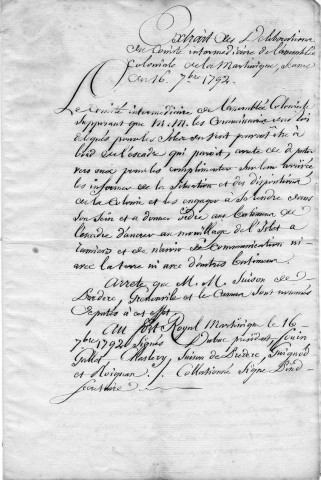 Extrait des Délibérations
du Comité intermédiaire de l'assemblée
Coloniale de la Martinique, Séance
du 16 7bre 1792.
Le Comité intermédiaire de l'assemblée Coloniale
Supposant que M.M. les Commissaires du Roi
délégués pour les Isles du Vent pourroit être à
bord de l'escadre qui paroit, arrete de députer
vers eux pour les complimenter sur leur arrivée
les informer de la Situation et des dispositions
de la Colonie et les engager à se rendre dans
Son Sein et a donner ordre aux Batimens de
l'escadre d'ancrer au mouillage de l'Islet à
Ramiers et de n'avoir de Communication ni
avec la terre ni avec d'autres Batimens.
Arrete que M. M. Suison de
Bédère, Grenonville et le Camus Sont nommés
députés à cet effet.
Au fort Royal Martinique le 16
7bre 1792. Signés Dubuc président
Gallet Suison de Bédère, Guignod
et Collationné Signé
Secrétaire